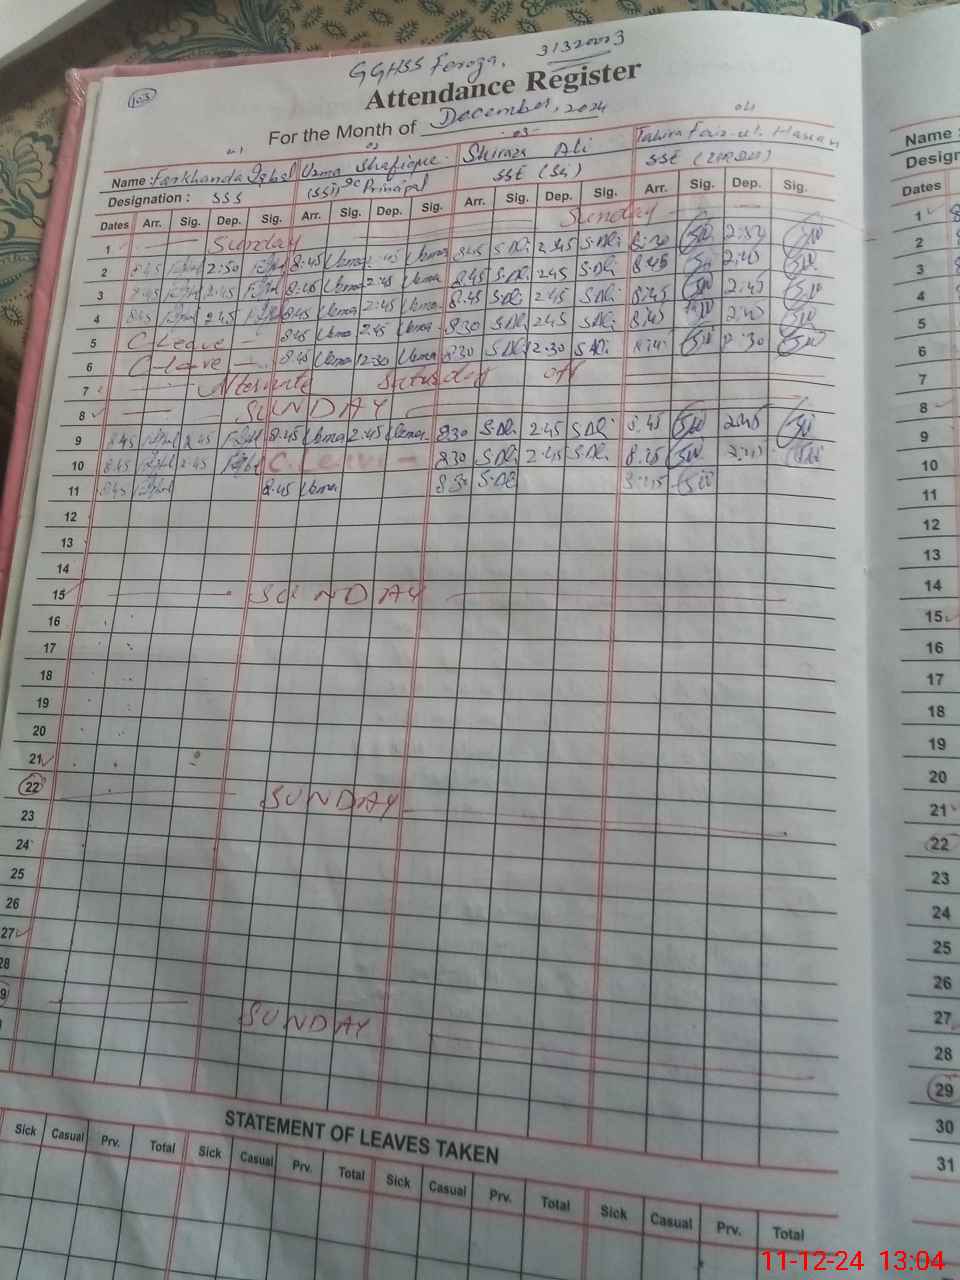 GGHSS Feroza. 31320003
103
Attendance Register
For the Month of December, 2024
01 02 03 04
Name: Farkhanda Iqbal Uzma Shafique. Shiraza Ali Tahira Faiz-ul-Hassan
Designation: SSS (SSS) Principal SSE (Sci) SSE (URDU)
Dates Arr. Sig. Dep. Sig. Arr. Sig. Dep. Sig. Arr. Sig. Dep. Sig. Arr. Sig. Dep. Sig.
1 Sunday Sunday
2 8:45 2:50 8:45 Uzma 2:45 Uzma 8:45 S.Ali 2:45 S.Ali
3 8:45 2:45 Uzma 2:45 Uzma 8:45 S.Ali 2:45 S.Ali 8:45 2:45
4 8:45 2:45 8:45 Uzma 2:45 Uzma 8:45 S.Ali 2:45 S.Ali 8:45 2:45
5 C.Leave 8:45 Uzma 2:45 Uzma 8:30 S.Ali 2:45 S.Ali 8:45 2:45
6 C-leave 8:45 Uzma 12:30 Uzma 8:30 S.Ali 12:30 S.Ali 12:30
7 Alternate Saturday off
8 SUNDAY
9 8:45 2:45 8:45 Uzma 2:45 Uzma 8:30 S.Ali 2:45 S.Ali 8:45 2:45
10 8:45 2:45 C.Leave 8:30 S.Ali 2:45 S.Ali
11 8:45 8:45 Uzma 8:30 S.Ali
12
13
14
15 SUNDAY
16
17
18
19
20
21
22 SUNDAY
23
24
25
26
27
28
SUNDAY
STATEMENT OF LEAVES TAKEN
Sick Casual Prv. Total Sick Casual Prv. Total Sick Casual Prv. Total Sick Casual Prv. Total
Name:
Dates
1
2
3
4
5
6
7
8
9
10
11
12
13
14
15
16
17
18
19
20
21
22
23
24
25
26
27
28
29
30
31
11-12-24 13:04